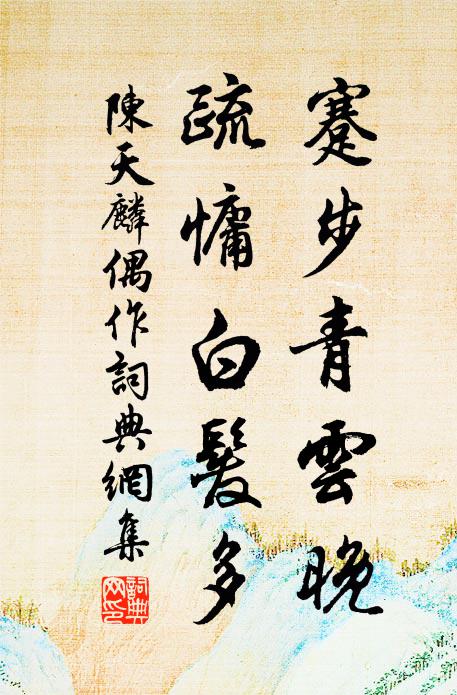 蹇步青雲晚
疏慵白髮多
陳天麟偶作詞典網集
詞典網印